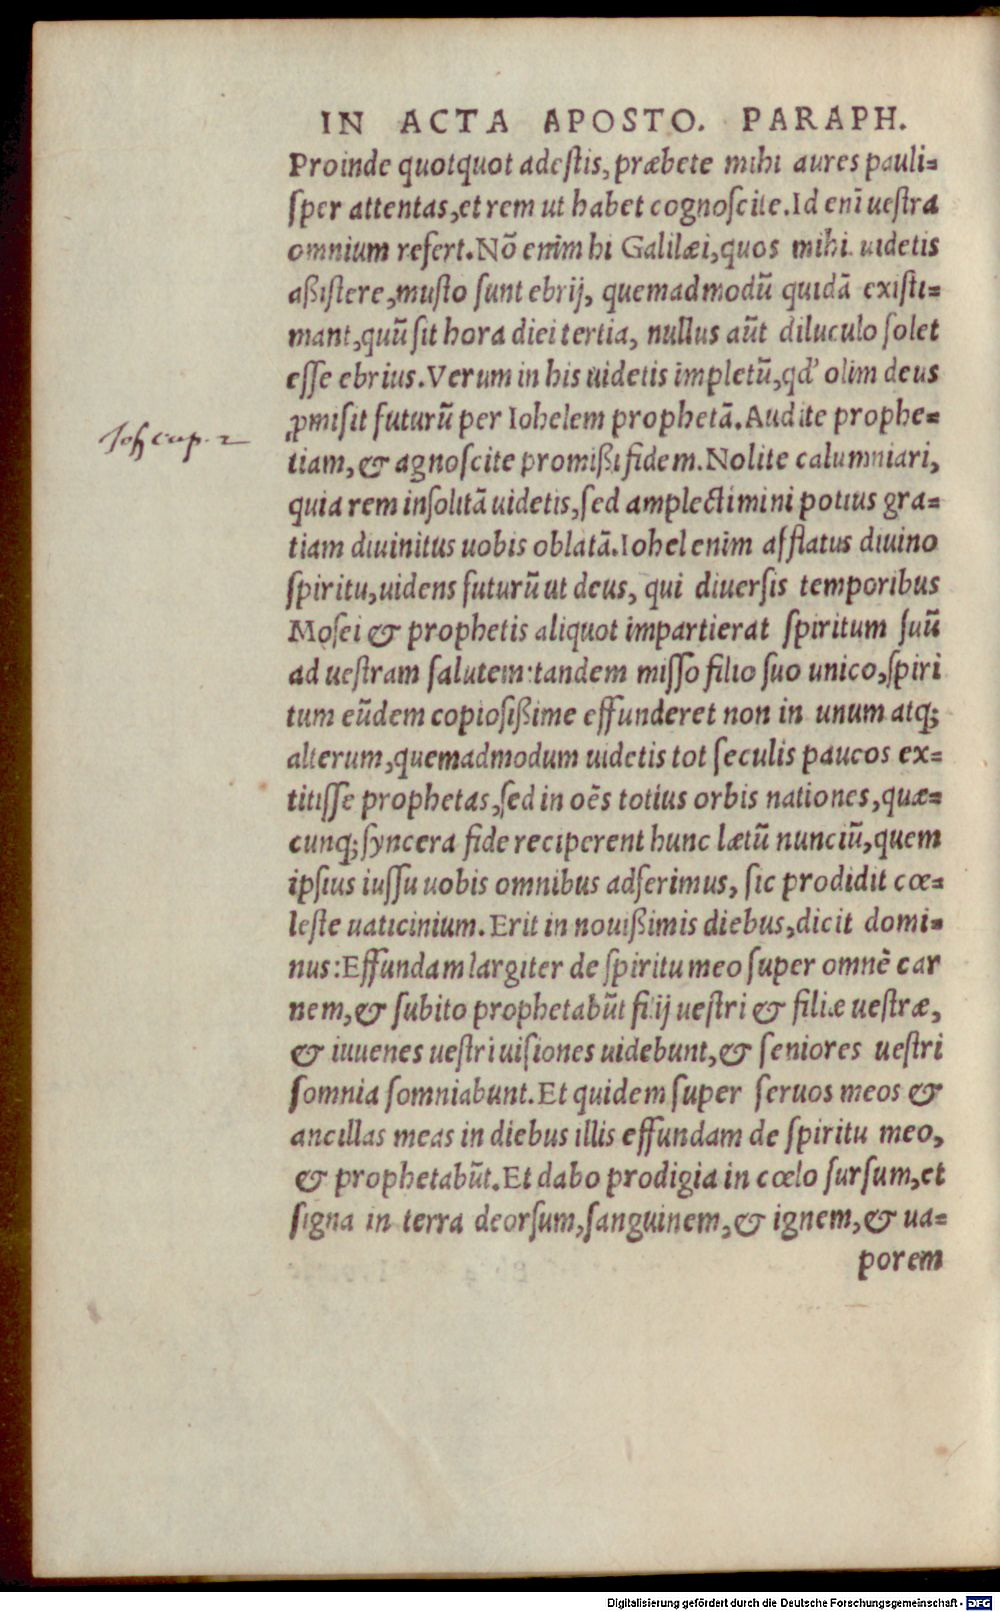 IN ACTA APOSTO. PARAPH.
Proinde quotquot adestis, præbete mihi aures pauli=
sper attentas, et rem ut habet cognoscite. Id enī uestra
omnium refert. Nō enim hi Galilæi, quos mihi uidetis
aßistere, musto sunt ebrij, quemadmodū quidā existi=
mant, quū sit hora diei tertia, nullus aūt diluculo solet
esse ebrius. Verum in his uidetis impletū, qd' olim deus
ꝓmisit futurū per Iohelem prophetā. Audite prophe=
Joh cap. 2
tiam, & agnoscite promißi fidem. Nolite calumniari,
quia rem insolitā uidetis, sed amplectimini potius gra=
tiam diuinitus uobis oblatā. Iohel enim afflatus diuino
spiritu, uidens futurū ut deus, qui diuersis temporibus
Mosei & prophetis aliquot impartierat spiritum suū
ad uestram salutem: tandem misso filio suo unico, spiri
tum eūdem copiosißime effunderet non in unum atq;
alterum, quemadmodum uidetis tot seculis paucos ex=
titisse prophetas, sed in oēs totius orbis nationes, quæ=
cunq; syncera fide reciperent hunc lætū nunciū, quem
ipsius iussu uobis omnibus adferimus, sic prodidit cœ=
leste uaticinium. Erit in nouißimis diebus, dicit domi=
nus: Effundam largiter de spiritu meo super omnē car
nem, & subito prophetabūt filij uestri & filiæ uestræ,
& iuuenes uestri uisiones uidebunt, & seniores uestri
somnia somniabunt. Et quidem super seruos meos &
ancillas meas in diebus illis effundam de spiritu meo,
& prophetabūt. Et dabo prodigia in cœlo sursum, et
signa in terra deorsum, sanguinem, & ignem, & ua=
porem
Digitalisierung gefördert durch die Deutsche Forschungsgemeinschaft - DFG